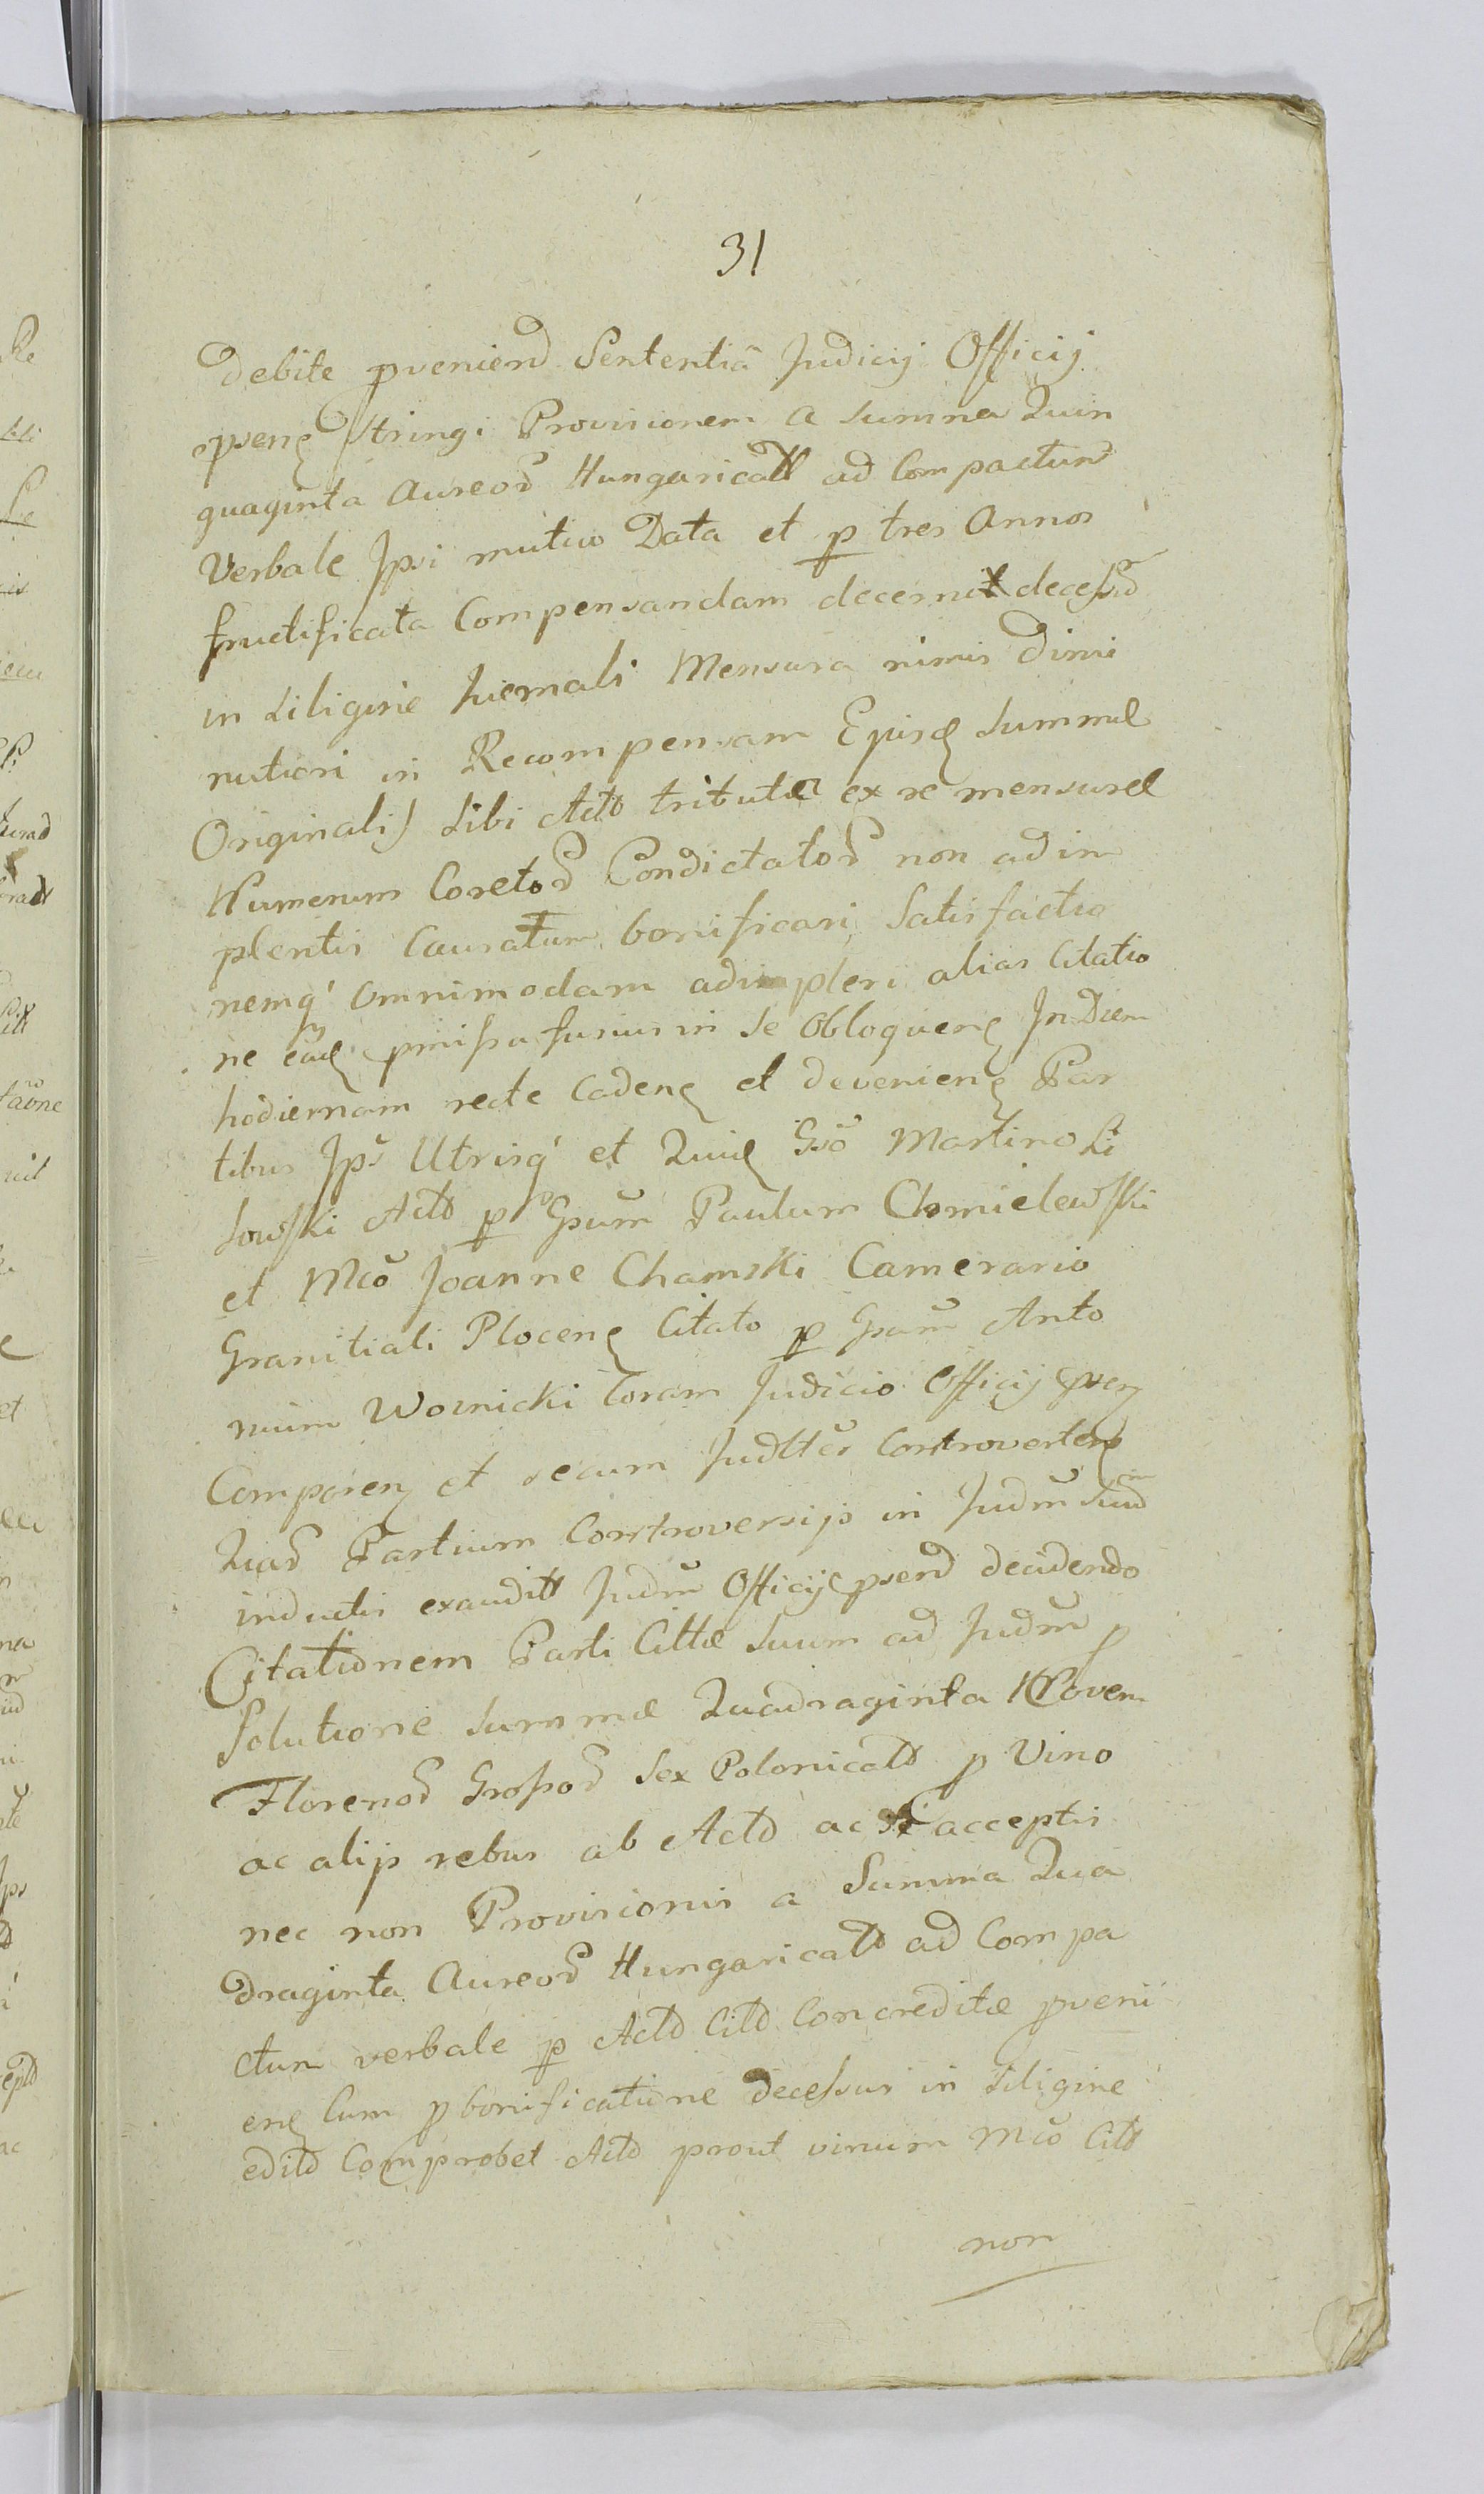 31
Debite pveniend Sententiã Judicij Officij
psenę Stringi Provisionem a Summa Quin
quaginta Aureoꝝ Hungaricall ad Compactum
Verbale Ipsi mutuo Data et p tres Annos
fructificata Compensandam decerni decessũ
in Siligine hiemali Mensura nimis Dimi
nutiori in Recompensam Ejusđ Summæ
Originalis Sibi Actō tributæ ex re mensuræ
Numerum Coretoꝝ Condictatoꝝ non adim
plentis Causatum bonificari Satisfactio
nemq' omnimodam adimpleri alias Citatio
ne eađ pmissa fusius in se Obloquenę In Diem
hodiernam recte Cadenę et devenienę Par
tibus Ips Utrisq' et Quiđ Gsõ Martino Li
sowski Actō p Gsum Paulum Chmielewski
et Mcõ Joanne Chamski Camerario
Granitiali Plocenę Citato p Gsum Anto
nium Woznicki Coram Judicio Officij psenę
Comparenę et secum Judlter Controverten
Quaꝝ Partium Controversijs in Judm Suũ
inductis exauditt Judm Officij psens decidendo
Citationem Parti Cittæ Suum ad Judm p
Solutione Summæ Quadraginta Novem
Florenoꝝ Grossoꝝ Sex Polonicall p Vino
ac alijs rebus ab Actō ac acceptis
nec non Provisionis a Summa Qua
draginta Aureoꝝ Hungaricall ad Compa
ctum verbale p Actō Citō Concreditæ pveni
enę Cum pbonificatione Decessus in Siligine
editō Comprobet Actō prout vinum Mcõ Citō
non